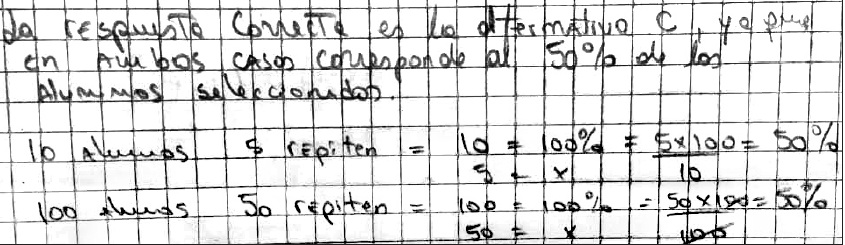 La respuesta correcta es la alternativa C, ya que
en Ambos casos corresponde al 50% de los
Alumnos seleccionados.
10 Alumnos 5 repiten = 10 = 100% = 5x100 = 50%
5 = x 10
100 Alumnos 50 repiten = 100 = 100% = 50x100 = 50%
50 = x 100